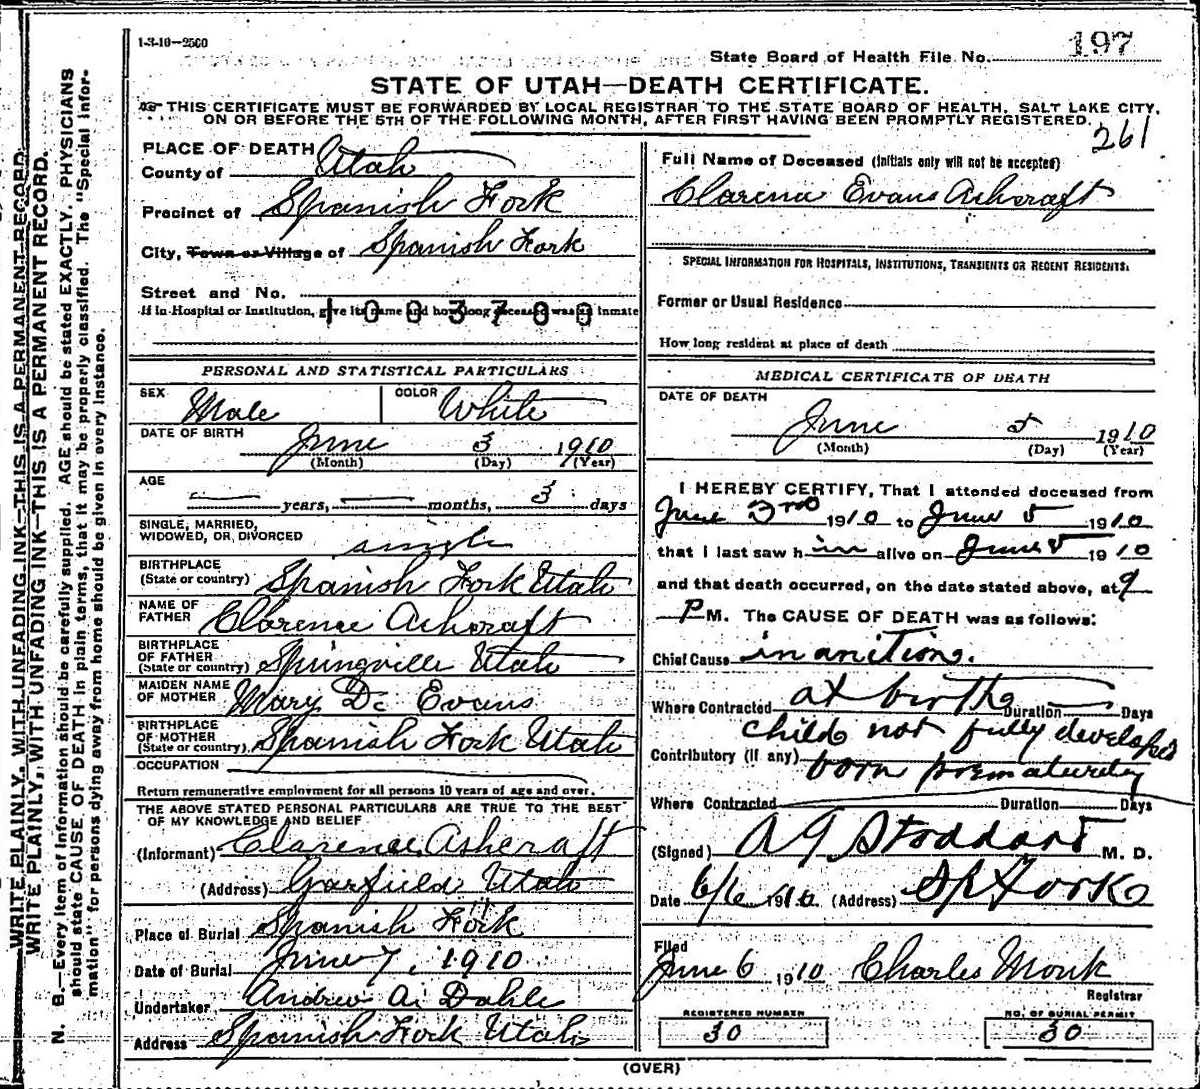 WRITE PLAINLY, WITH UNFADING INK—THIS IS A PERMANENT RECORD.
WRITE PLAINLY, WITH UNFADING INK—THIS IS A PERMANENT RECORD.
N. B.—Every item of information should be carefully supplied. AGE should be stated EXACTLY. PHYSICIANS
should state CAUSE OF DEATH in plain terms, that it may be properly classified. The "Special Infor-
mation" for persons dying away from home should be given in every instance.
1-3-10—2500
State Board of Health File No. 197
STATE OF UTAH—DEATH CERTIFICATE.
THIS CERTIFICATE MUST BE FORWARDED BY LOCAL REGISTRAR TO THE STATE BOARD OF HEALTH, SALT LAKE CITY,
ON OR BEFORE THE 5TH OF THE FOLLOWING MONTH, AFTER FIRST HAVING BEEN PROMPTLY REGISTERED.
261
PLACE OF DEATH
County of Utah
Precinct of Spanish Fork
City, Town or Village of Spanish Fork
Street and No.
If in Hospital or Institution, give its name and how long deceased was an inmate
1003780
PERSONAL AND STATISTICAL PARTICULARS
SEX Male COLOR White
DATE OF BIRTH June 3 1910
(Month) (Day) (Year)
AGE
years, months, 3 days
SINGLE, MARRIED,
WIDOWED, OR DIVORCED single
BIRTHPLACE
(State or country) Spanish Fork Utah
NAME OF
FATHER Clarence Ashcraft
BIRTHPLACE
OF FATHER
(State or country) Springville Utah
MAIDEN NAME
OF MOTHER Mary D. Evans
BIRTHPLACE
OF MOTHER
(State or country) Spanish Fork Utah
OCCUPATION
Return remunerative employment for all persons 10 years of age and over.
THE ABOVE STATED PERSONAL PARTICULARS ARE TRUE TO THE BEST
OF MY KNOWLEDGE AND BELIEF
(Informant) Clarence Ashcraft
(Address) Garfield Utah
Place of Burial Spanish Fork
Date of Burial June 7, 1910
Undertaker Andrew A. Dahle
Address Spanish Fork Utah
Full Name of Deceased (Initials only will not be accepted)
Clarence Evans Ashcraft
SPECIAL INFORMATION FOR HOSPITALS, INSTITUTIONS, TRANSIENTS OR RECENT RESIDENTS.
Former or Usual Residence
How long resident at place of death
MEDICAL CERTIFICATE OF DEATH
DATE OF DEATH
June 5 1910
(Month) (Day) (Year)
I HEREBY CERTIFY, That I attended deceased from
June 3rd 1910 to June 5 1910
that I last saw him alive on June 5 1910
and that death occurred, on the date stated above, at 9
P M. The CAUSE OF DEATH was as follows:
Chief Cause inanition.
Where Contracted at birth Duration Days
child not fully developed
Contributory (if any) born prematurely
Where Contracted Duration Days
(Signed) A G Stoddard M. D.
Date 6/6 1910. (Address) Sp Fork
Filed
June 6 1910 Charles Monk
Registrar
REGISTERED NUMBER
30
NO. OF BURIAL PERMIT
30
(OVER)